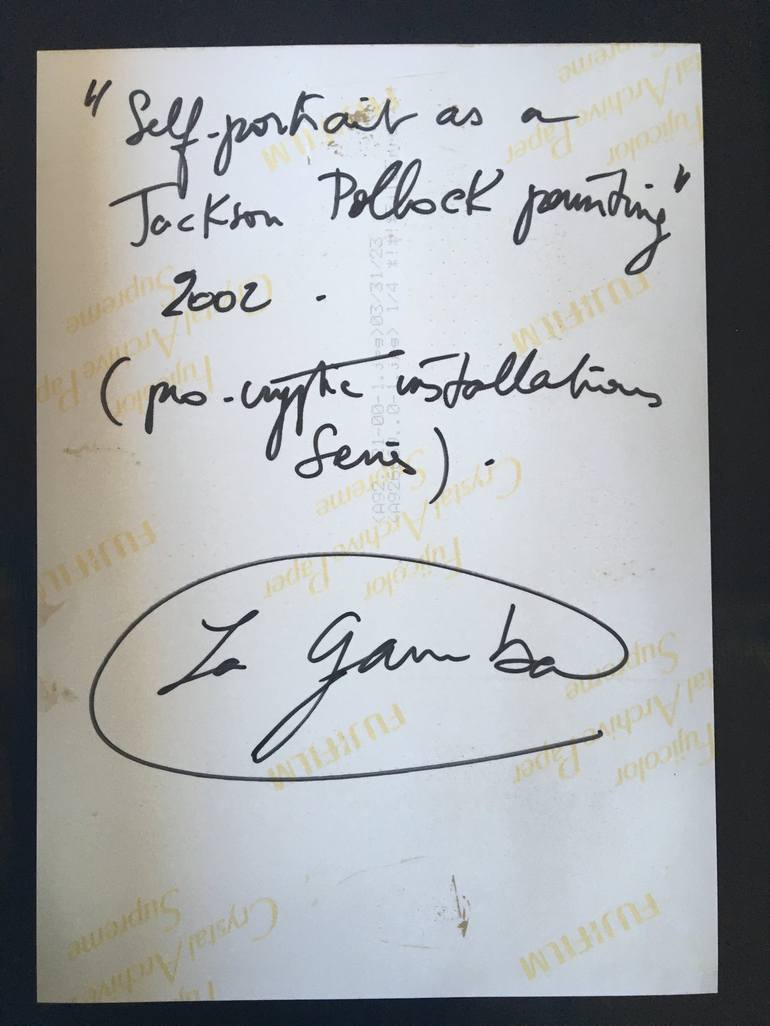 "Self-portrait as a
Jackson Pollock painting"
2002.
(pro-cryptic installations
Series).
La Gamba
FUJIFILM
Fujicolor
Crystal Archive Paper
Supreme